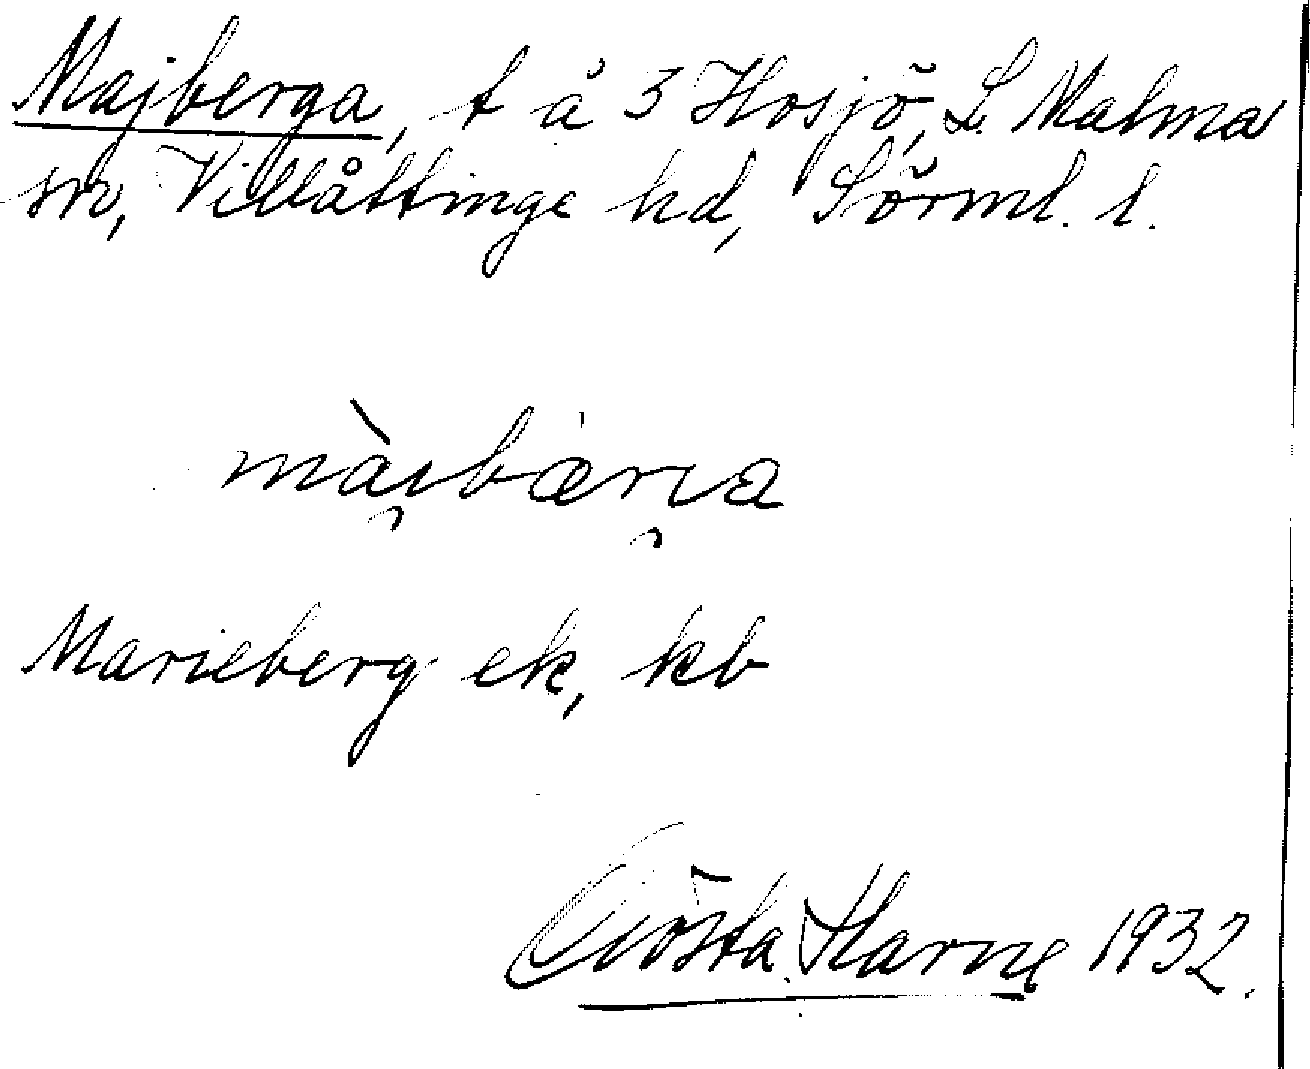 Majberga, t å 3 Hosjö, L. Malma
sn, Villåttinge hd, Sörml. l.
màı̯bærı̯a
Marieberg ek, kb
Gösta Harne 1932.